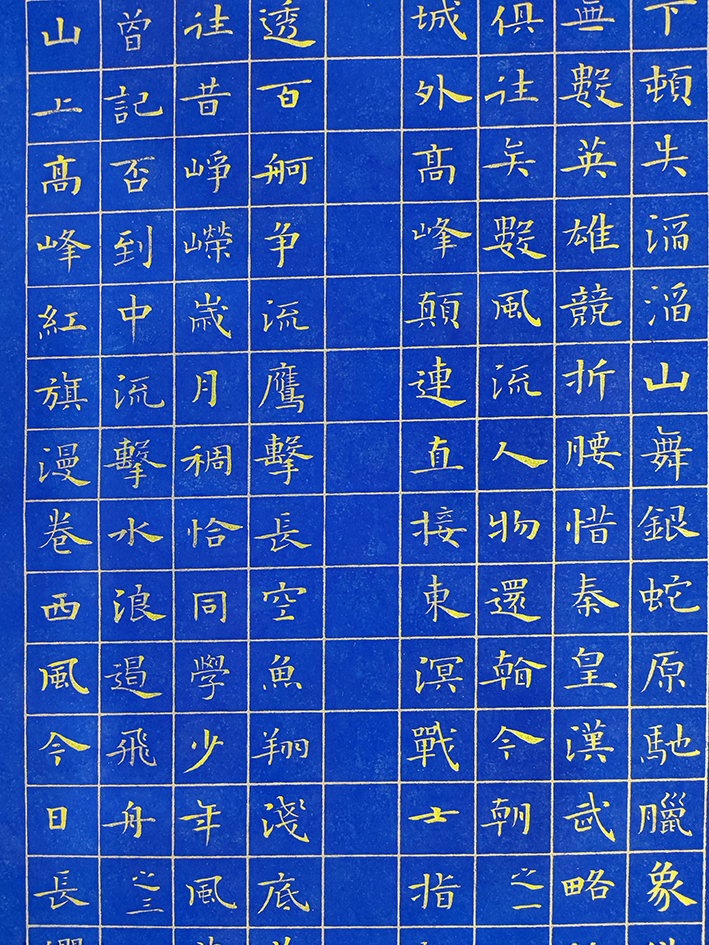 下頓失滔滔山舞銀蛇原馳臘象
無數英雄競折腰惜秦皇漢武略
俱往矣數風流人物還看今朝之一
城外髙峰顛連直接東溟戰士指
透百舸争流鷹擊長空魚翔淺底
往昔崢嶸歲月稠恰同學少年風
曾記否到中流擊水浪遏飛舟之三
山上髙峰紅旗漫卷西風今日長